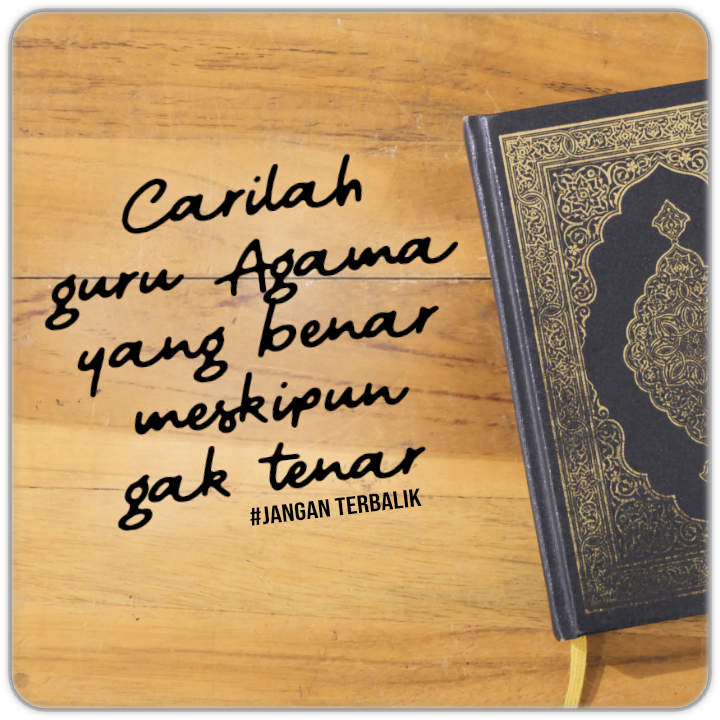 Carilah
guru Agama
yang benar
meskipun
gak tenar
#JANGAN TERBALIK